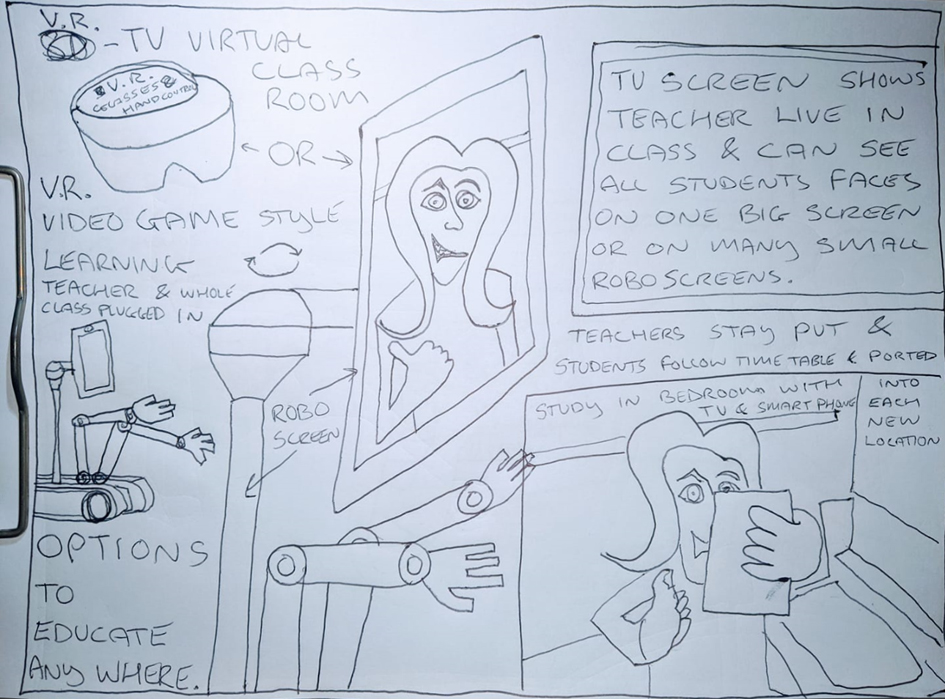 V.R.
- TV VIRTUAL
CLASS
ROOM
& V.R. &
GLASSES
HANDCONTROL
← OR →
V.R.
VIDEO GAME STYLE
LEARNING
TEACHER & WHOLE
CLASS PLUGGED IN
ROBO
SCREEN
OPTIONS
TO
EDUCATE
ANY WHERE.
TV SCREEN SHOWS
TEACHER LIVE IN
CLASS & CAN SEE
ALL STUDENTS FACES
ON ONE BIG SCREEN
OR ON MANY SMALL
ROBOSCREENS.
TEACHERS STAY PUT &
STUDENTS FOLLOW TIME TABLE & PORTED
INTO
EACH
NEW
LOCATION
STUDY IN BEDROOM WITH
TV & SMART PHONE